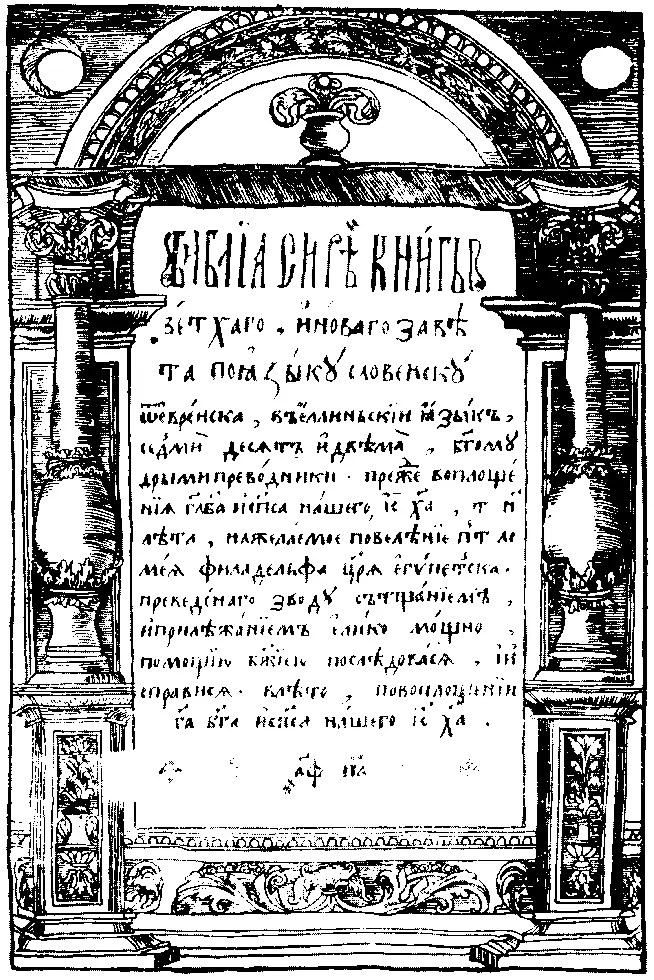 БИБЛІА СИРѢ҃Ч КНИ́ГЫ
ВЕ́ТХАГО . И НОВАГО ЗАВѢ
ТА ПОІАЗЫКУ СЛОВЕНСКУ
ѿЕВРЕ́ЙСКА , въе́ллиньскїй ꙗзы́къ ,
се́дми десятъ и҆двѣма̀ , бг҃ому
дрыми прево́дники . пре́же воплоще́
нїя га҃ ба҃ и҆сп҃са на́шего , і҃с ха҃ , т҃ и҃
лѣ́та , нажела́емое повелѣ́нїе птꙍ ло
ме́я филаде́льфа цр҃ѧ еги́петска .
преведе́наго зво́ду сътща́нїемъ ,
и҆прилѣжа́нїемъ е҆ли́ко мо́щно ,
по́мощїю бж҃їею послѣ́довася , и҆и
спра́вися . влѣ́то , повоплоще́нїи
га҃ бг҃а и҆сп҃са на́шего і҃с ха҃ .
҂аф҃ па҃